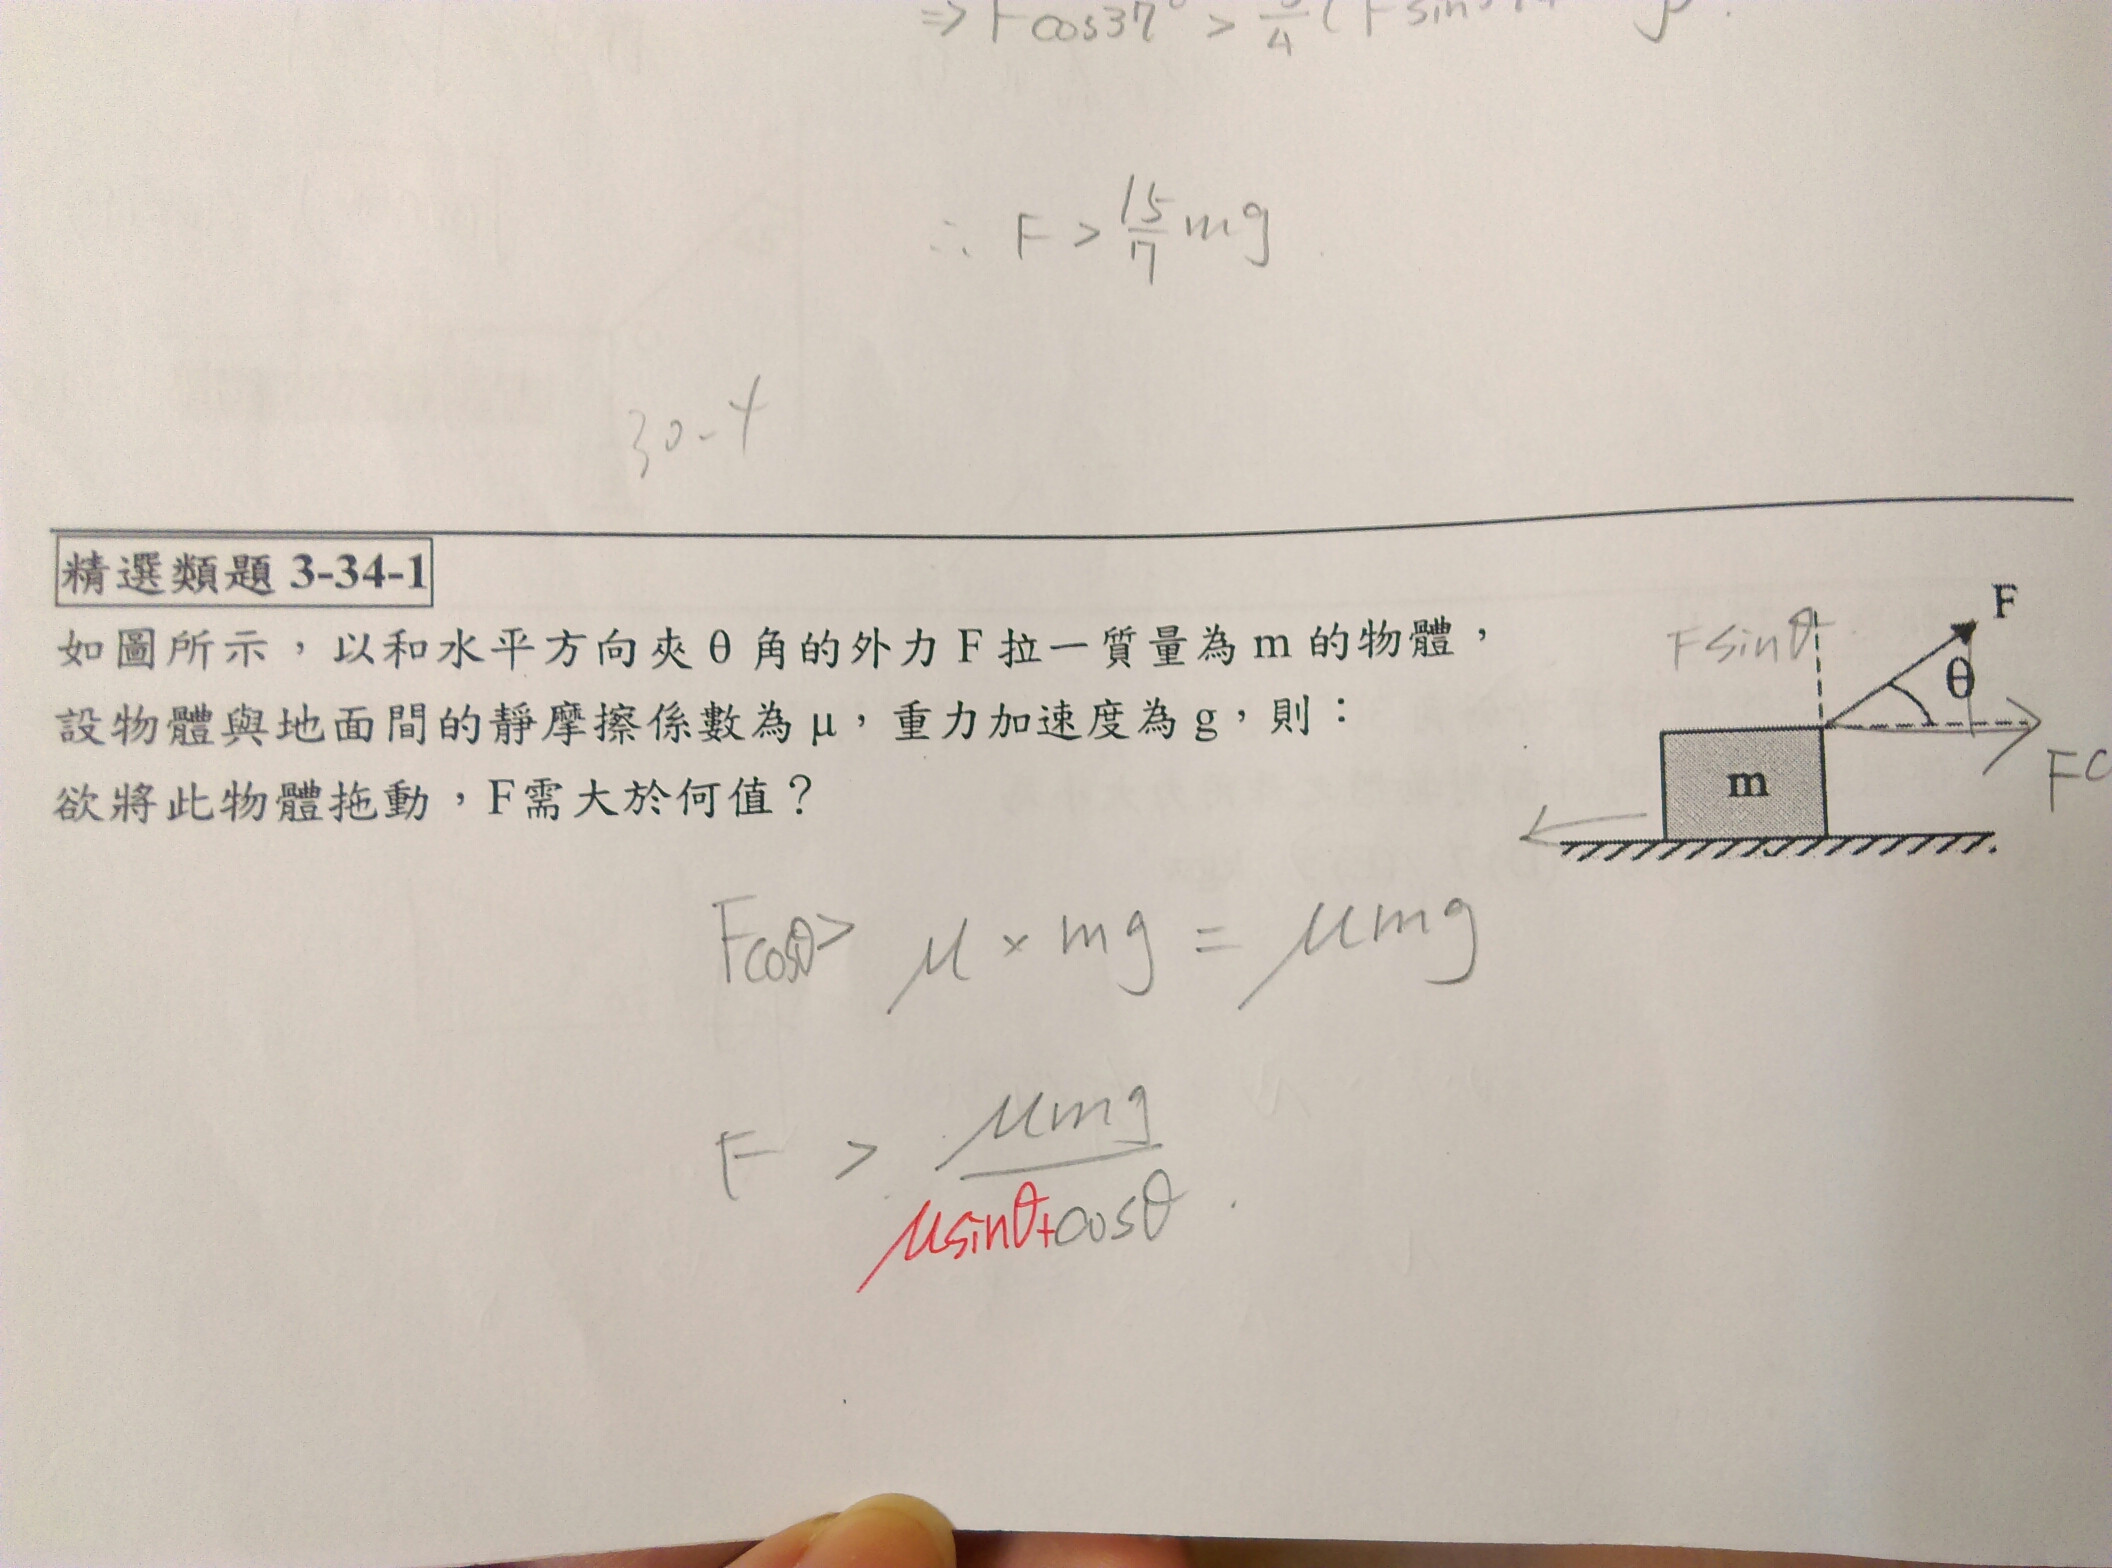 ⇒ F cos37° > 
∴ F > 15/7 mg
30-4
精選類題 3-34-1
如圖所示，以和水平方向夾 θ 角的外力 F 拉一質量為 m 的物體，
設物體與地面間的靜摩擦係數為 μ，重力加速度為 g，則：
欲將此物體拖動，F需大於何值？
F sinθ
F
θ
m
FC
Fcosθ > μ × mg = μmg
F > μmg / μsinθ+cosθ